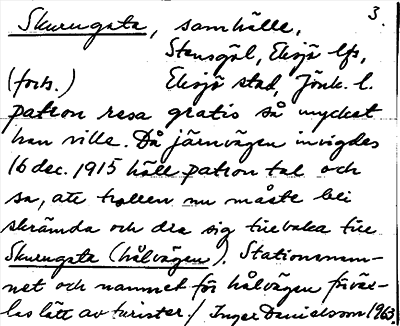 3.
Skurugata, samhälle,
Stensgöl, Eksjö lfs,
(forts.) Eksjö stad, Jönk. l.
patron resa gratis så mycket
han ville. Då järnvägen invigdes
16 dec. 1915 höll patron tal och
sa, att trollen nu måste bli
skrämda och dra sig tillbaka till
Skurugata (hålvägen). Stationsnam-
net och namnet för hålvägen förväx-
las lätt av turister./ Inger Danielsson 1963.